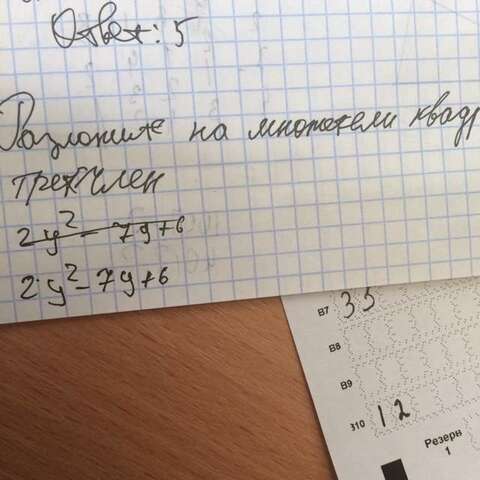 Ответ: 5
Разложите на множетели квадр
трехчлен
2y²- 7y+6
2y²-7y+6
B7 35
B8
B9
B10 12
Резерв
1